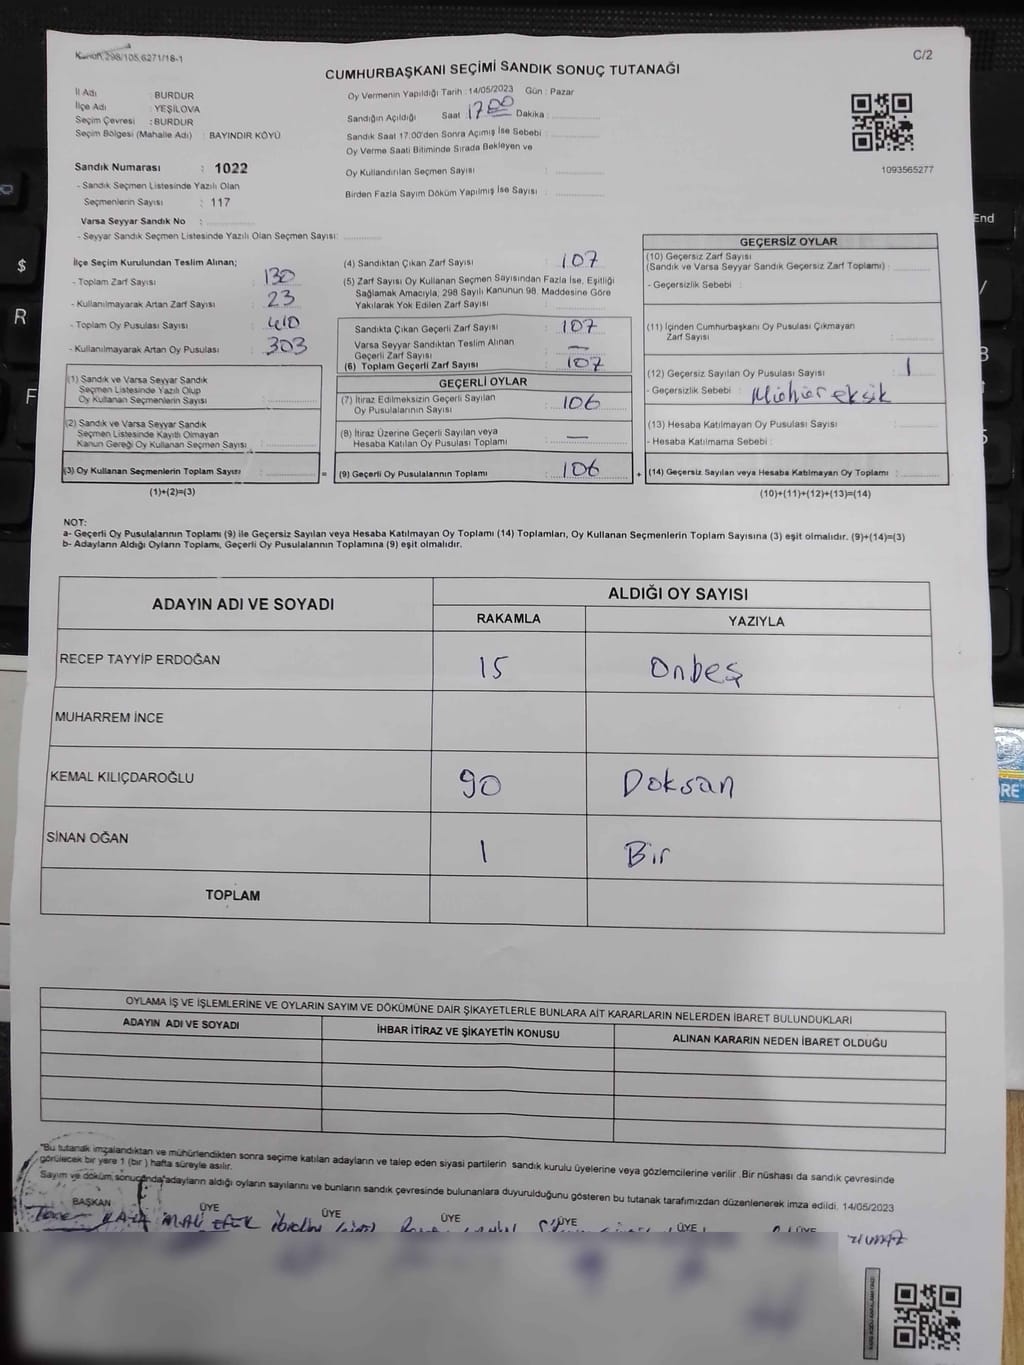 Kanun 298/105,6271/18-1
C/2
CUMHURBAŞKANI SEÇİMİ SANDIK SONUÇ TUTANAĞI
İl Adı : BURDUR
İlçe Adı : YEŞİLOVA
Seçim Çevresi : BURDUR
Seçim Bölgesi (Mahalle Adı) : BAYINDIR KÖYÜ
Sandık Numarası : 1022
- Sandık Seçmen Listesinde Yazılı Olan
Seçmenlerin Sayısı : 117
Varsa Seyyar Sandık No :
- Seyyar Sandık Seçmen Listesinde Yazılı Olan Seçmen Sayısı:
Oy Vermenin Yapıldığı Tarih : 14/05/2023 Gün : Pazar
Sandığın Açıldığı Saat 17:00 Dakika :
Sandık Saat 17:00'den Sonra Açımış İse Sebebi :
Oy Verme Saati Bitiminde Sırada Bekleyen ve
Oy Kullandırılan Seçmen Sayısı :
Birden Fazla Sayım Döküm Yapılmış İse Sayısı :
1093565277
İlçe Seçim Kurulundan Teslim Alınan;
- Toplam Zarf Sayısı : 130
- Kullanılmayarak Artan Zarf Sayısı : 23
- Toplam Oy Pusulası Sayısı : 410
- Kullanılmayarak Artan Oy Pusulası : 303
(1) Sandık ve Varsa Seyyar Sandık
Seçmen Listesinde Yazılı Olup
Oy Kullanan Seçmenlerin Sayısı :
(2) Sandık ve Varsa Seyyar Sandık
Seçmen Listesinde Kayıtlı Olmayan
Kanun Gereği Oy Kullanan Seçmen Sayısı :
(3) Oy Kullanan Seçmenlerin Toplam Sayısı :
(1)+(2)=(3)
(4) Sandıktan Çıkan Zarf Sayısı : 107
(5) Zarf Sayısı Oy Kullanan Seçmen Sayısından Fazla İse, Eşitliği
Sağlamak Amacıyla, 298 Sayılı Kanunun 98. Maddesine Göre
Yakılarak Yok Edilen Zarf Sayısı :
Sandıkta Çıkan Geçerli Zarf Sayısı : 107
Varsa Seyyar Sandıktan Teslim Alınan
Geçerli Zarf Sayısı : —
(6) Toplam Geçerli Zarf Sayısı : 107
GEÇERLİ OYLAR
(7) İtiraz Edilmeksizin Geçerli Sayılan
Oy Pusulalarının Sayısı : 106
(8) İtiraz Üzerine Geçerli Sayılan veya
Hesaba Katılan Oy Pusulası Toplamı : —
= (9) Geçerli Oy Pusulalarının Toplamı : 106
GEÇERSİZ OYLAR
(10) Geçersiz Zarf Sayısı
(Sandık ve Varsa Seyyar Sandık Geçersiz Zarf Toplamı) :
- Geçersizlik Sebebi :
(11) İçinden Cumhurbaşkanı Oy Pusulası Çıkmayan
Zarf Sayısı :
(12) Geçersiz Sayılan Oy Pusulası Sayısı : 1
- Geçersizlik Sebebi : Mühür eksik
(13) Hesaba Katılmayan Oy Pusulası Sayısı :
- Hesaba Katılmama Sebebi :
+ (14) Geçersiz Sayılan veya Hesaba Katılmayan Oy Toplamı :
(10)+(11)+(12)+(13)=(14)
NOT:
a- Geçerli Oy Pusulalarının Toplamı (9) ile Geçersiz Sayılan veya Hesaba Katılmayan Oy Toplamı (14) Toplamları, Oy Kullanan Seçmenlerin Toplam Sayısına (3) eşit olmalıdır. (9)+(14)=(3)
b- Adayların Aldığı Oyların Toplamı, Geçerli Oy Pusulalarının Toplamına (9) eşit olmalıdır.
ADAYIN ADI VE SOYADI
ALDIĞI OY SAYISI
RAKAMLA YAZIYLA
RECEP TAYYİP ERDOĞAN 15 Onbeş
MUHARREM İNCE
KEMAL KILIÇDAROĞLU 90 Doksan
SİNAN OĞAN 1 Bir
TOPLAM
OYLAMA İŞ VE İŞLEMLERİNE VE OYLARIN SAYIM VE DÖKÜMÜNE DAİR ŞİKAYETLERLE BUNLARA AİT KARARLARIN NELERDEN İBARET BULUNDUKLARI
ADAYIN ADI VE SOYADI İHBAR İTİRAZ VE ŞİKAYETİN KONUSU ALINAN KARARIN NEDEN İBARET OLDUĞU
"Bu tutanak imzalandıktan ve mühürlendikten sonra seçime katılan adayların ve talep eden siyasi partilerin sandık kurulu üyelerine veya gözlemcilerine verilir. Bir nüshası da sandık çevresinde
görülecek bir yere 1 (bir) hafta süreyle asılır.
Sayım ve döküm sonucunda adayların aldığı oyların sayılarını ve bunların sandık çevresinde bulunanlara duyurulduğunu gösteren bu tutanak tarafımızdan düzenlenerek imza edildi. 14/05/2023
BAŞKAN ÜYE ÜYE ÜYE ÜYE ÜYE ÜYE